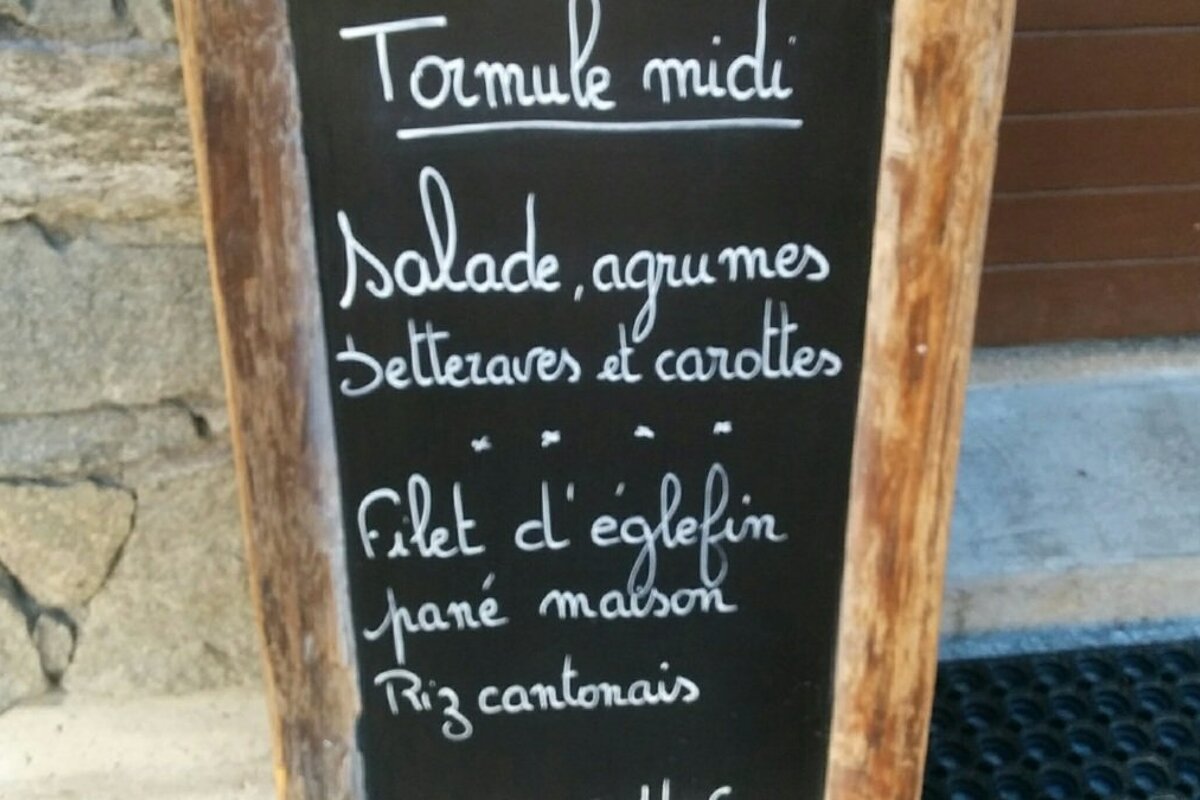 Formule midi
Salade, agrumes
betteraves et carottes
Filet d'églefin
pané maison
Riz cantonais